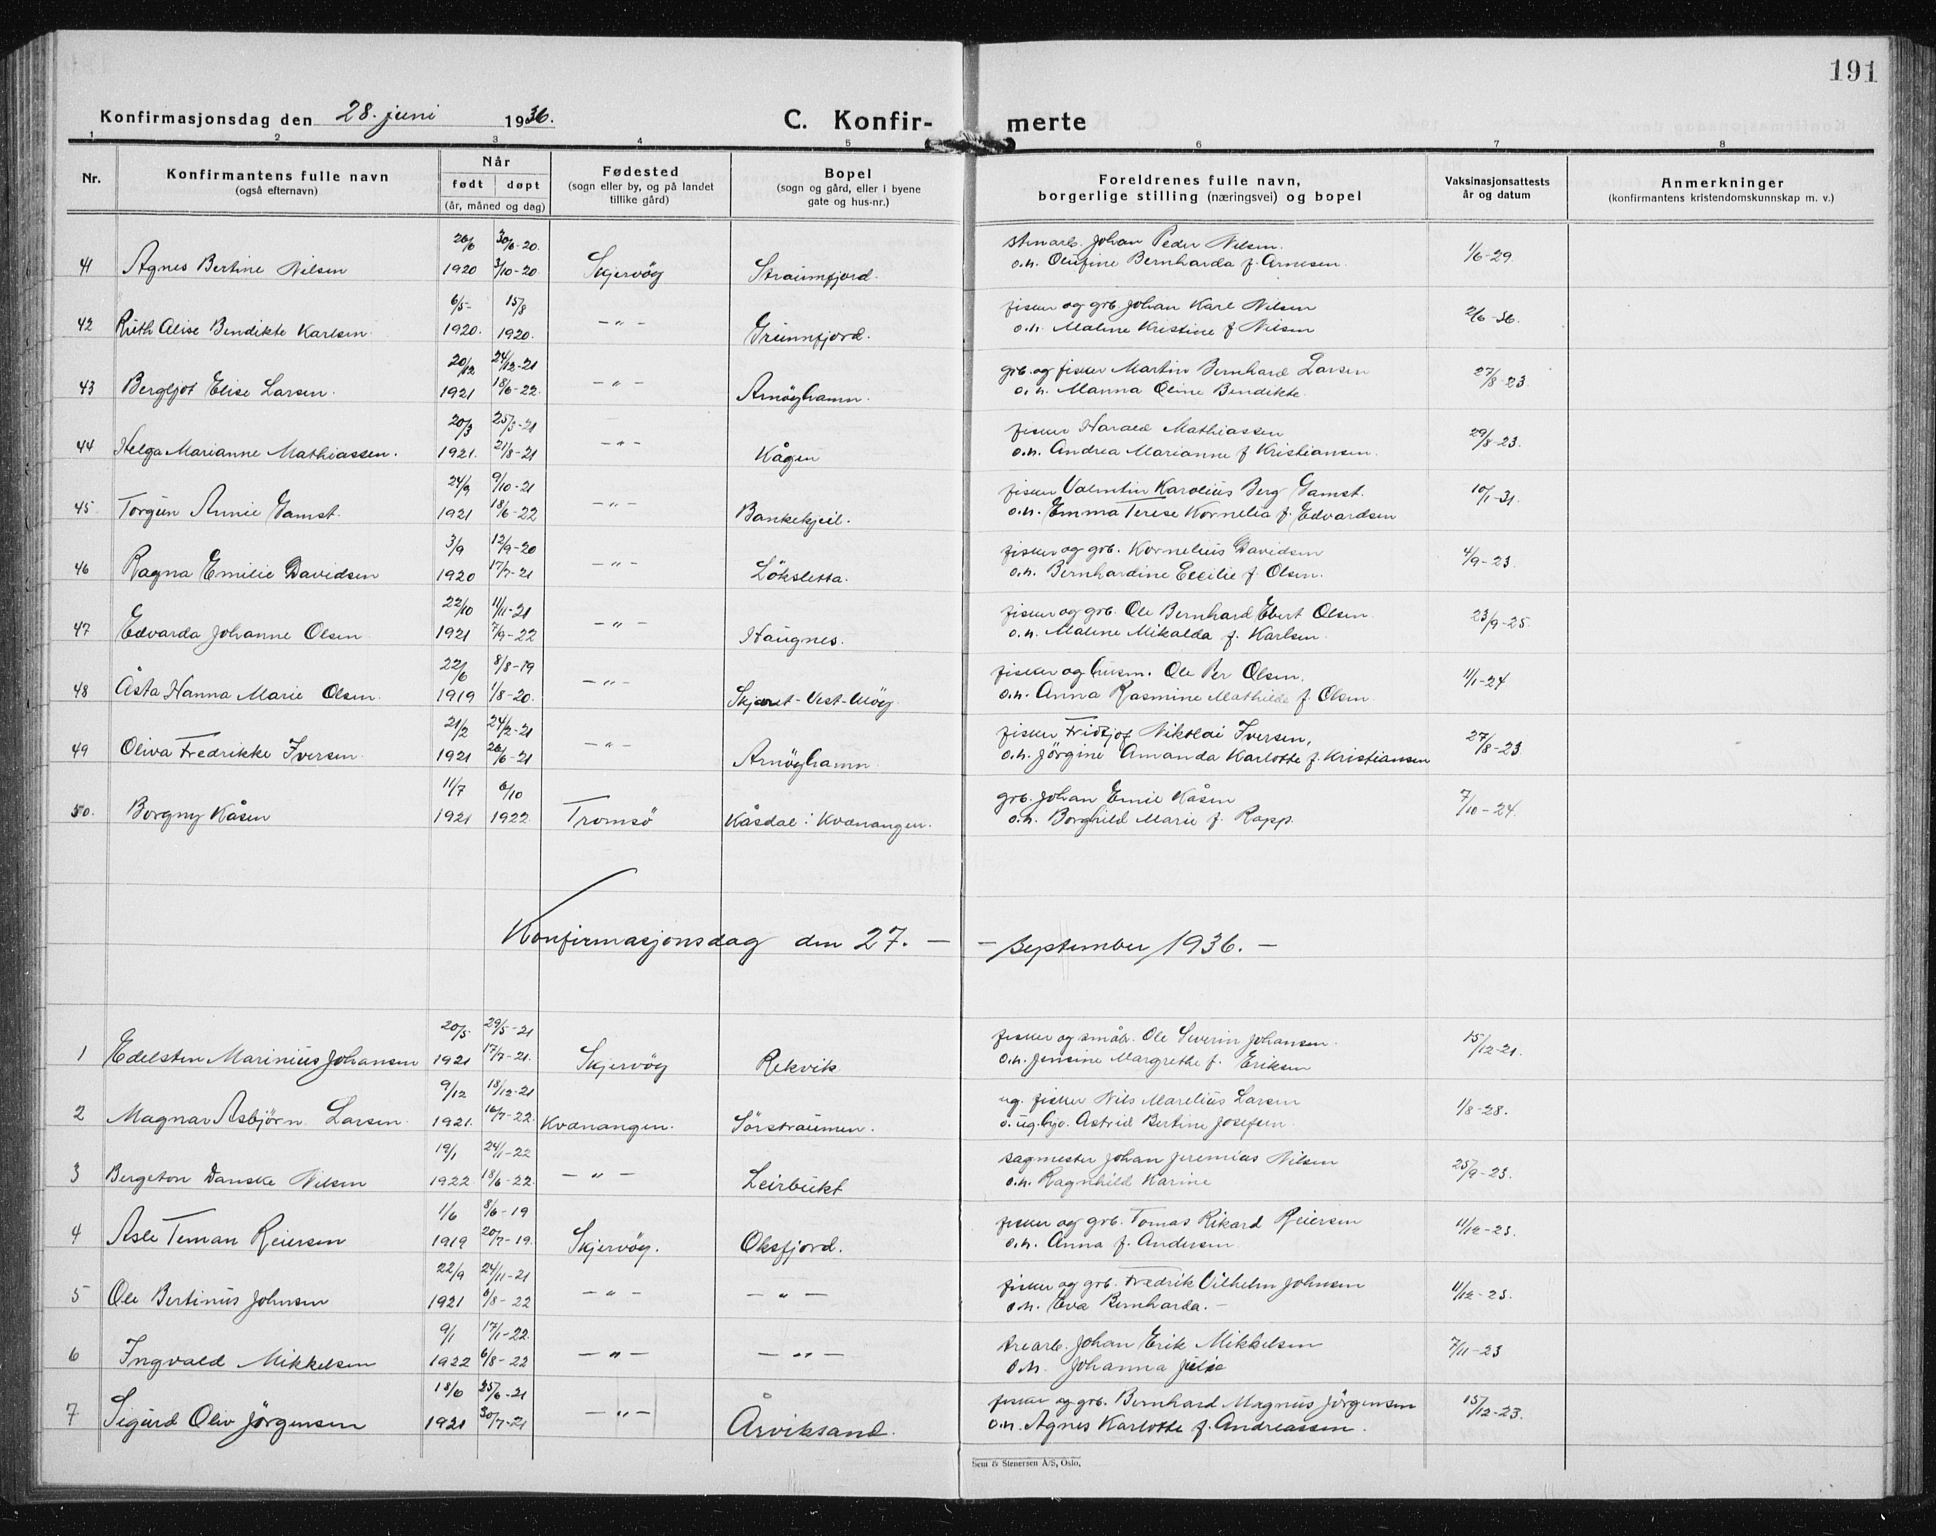 191
Konfirmasjonsdag den 28. juni 1936.
C. Konfir- merte
1 2 3 4 5 6 7 8
Nr.
Konfirmantens fulle navn
(også efternavn)
Når
født døpt
(år, måned og dag)
Fødested
(sogn eller by, og på landet
tillike gård)
Bopel
(sogn og gård, eller i byene
gate og hus-nr.)
Foreldrenes fulle navn,
borgerlige stilling (næringsvei) og bopel
Vaksinasjonsattests
år og datum
Anmerkninger
(konfirmantens kristendomskunnskap m. v.)
26/6 30/6-20. stenarb. Johan Peder Nilsen.
41 Agnes Bertine Nilsen 1920 3/10-20 Skjervøy Straumfjord. o.h. Olufine Bernharda f. Arnesen. 1/6-29.
6/5- 15/8 fisker og grb. Johan Karl Nilsen
42 Ruth Alise Bendikte Karlsen 1920. 1920. -"- Grunnfjord. o.h. Maline Kristine f Nilsen 2/6-36.
20/12 24/12-21 grb. og fisker Martin Bernhard Larsen
43 Bergljot Elise Larsen. 1921 18/6-22. -"- Arnøyhamn. o.h. Manna Oline Bendikte 27/8-23.
20/3 25/3-21 fisker Harald Mathiassen
44 Helga Marianne Mathiassen. 1921. 21/8-21 -"- Kågen o.h. Andrea Marianne f Kristiansen. 29/8-23.
24/9 9/10-21 fisker Valentin Karolius Berg Gamst.
45 Torgun Annie Gamst. 1921 18/6-22 -"- Bankekjeil. o.h. Emma Terese Kornelia f. Edvardsen 10/1-31.
3/9 12/9-20 fisker og grb. Kornelius Davidsen
46 Ragna Emilie Davidsen 1920 17/7-21 -"- Løksletta. o.h. Bernhardine Cecilie f. Olsen. 4/9-23.
22/10 11/11-21 fisker og grb. Ole Bernhard Ebert Olsen
47 Edvarda Johanne Olsen 1921 7/9-22 -"- Haugnes. o.h. Maline Mikalda f. Karlsen. 23/9-25.
22/6 8/8-19 fisker og husm. Ole Per Olsen.
48 Åsta Hanna Marie Olsen. 1919 1/8-20. -"- Skjæret-Vest-Uløy. o.h. Anna Rasmine Mathilde f. Olsen 11/1-24
21/2 24/2-21 fisker Fridtjof Nikolai Iversen,
49 Oliva Fredrikke Iversen 1921 26/6-21 -"- Arnøyhamn. o.h. Jørgine Amanda Karlotte f. Kristiansen 27/8-23.
11/7 6/10 grb. Johan Emil Kåsen
50. Borgny Kåsen 1921 1922. Tromsö Kåsdal i Kvænangen. o.h. Borghild Marie f. Rapp. 7/10-24.
Konfirmasjonsdag den 27. - - september 1936. -
20/5. 29/5-21 fisker og småb. Ole Severin Johansen.
1 Edelsten Marinius Johansen 1921 17/7-21. Skjervøy Rekvik o.h. Jensine Margrethe f. Eriksen 15/12-21.
9/12 18/12-21 ug. fisker Nils Marelius Larsen
2 Magnar Asbjørn Larsen. 1921. 16/7-22. Kvænangen. Sørstraumen. o. ug. Astrid Bertine Josefsen. 1/8-28.
19/1 24/1-22 sagmester Johan Jeremias Nilsen
3 Bergeton Danske Nilsen 1922 18/6-22. -"- Leirbukt o.h. Ragnhild Karine 25/9-23.
1/6 8/6-19 fisker og grb. Tomas Rikard Reiersen
4 Asle Teman Reiersen 1919 20/7-19. Skjervøy. Oksfjord. o.h. Anna f. Andersen. 11/12-23.
22/9 24/11-21 fisker og grb. Fredrik Vilhelm Johnsen
5 Ole Bertinus Johnsen 1921 6/8-22 -"- -"- o.h. Eva Bernharda. - 11/12-23.
9/1 17/1-22. trearb. Johan Erik Mikkelsen
6 Ingvald Mikkelsen 1922 6/8-22 -"- -"- o.h. Johanna Julie 7/11-23
18/6 25/6-21 fisker og grb. Bernhard Magnus Jørgensen
7 Sigurd Oliv Jørgensen 1921 30/7-21 -"- Årviksand. o.h. Agnes Karlotte f. Andreassen. 15/12-23.
Sem & Stenersen A/S, Oslo.